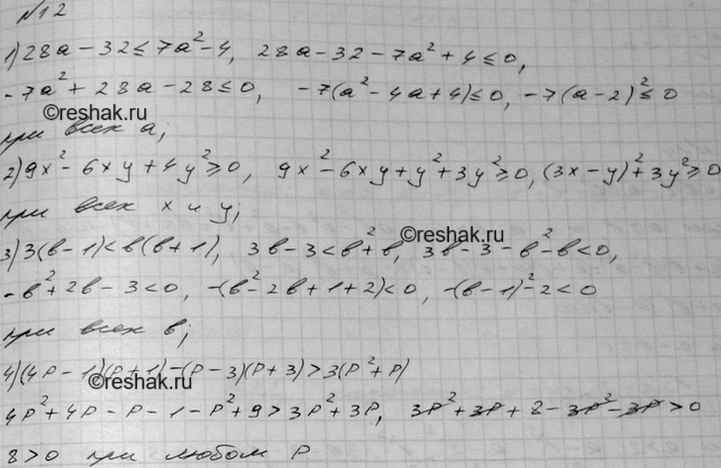 №12
1) 28a − 32 ≤ 7a² − 4, 28a − 32 − 7a² + 4 ≤ 0,
−7a² + 28a − 28 ≤ 0, −7(a² − 4a + 4) ≤ 0, −7(a − 2)² ≤ 0
©reshak.ru
при всех a;
2) 9x² − 6xy + 4y² ≥ 0, 9x² − 6xy + y² + 3y² ≥ 0, (3x − y)² + 3y² ≥ 0
при всех x и y;
©reshak.ru
3) 3(b − 1) < b(b + 1), 3b − 3 < b² + b, 3b − 3 − b² − b < 0,
−b² + 2b − 3 < 0, −(b² − 2b + 1 + 2) < 0, −(b − 1)² − 2 < 0
при всех b;
4) (4p − 1)(p + 1) − (p − 3)(p + 3) > 3(p² + p)
©reshak.ru
4p² + 4p − p − 1 − p² + 9 > 3p² + 3p, 3p² + 3p + 8 − 3p² − 3p > 0
8 > 0 при любом p